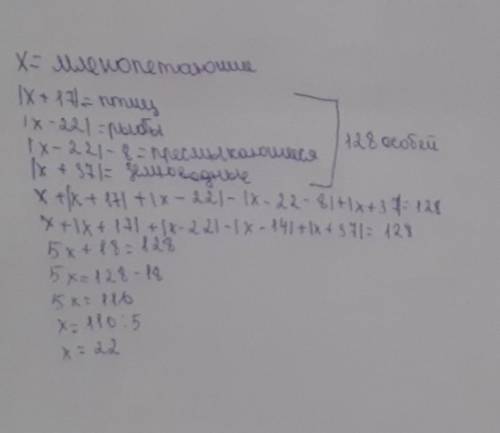 x = млекопетающие
|x + 17| = птиц
|x - 22| = рыбы
|x - 22| - 8 = пресмыкающиеся
128 особей
|x + 37| =
x + |x + 17| + |x - 22| - |x - 22 - 8| + |x + 37 = 128
x + |x + 17| + |x - 22| - |x - 14| + |x + 37| = 128
5x + 18 = 128
5x = 128 - 18
5x = 110
x = 110 : 5
x = 22